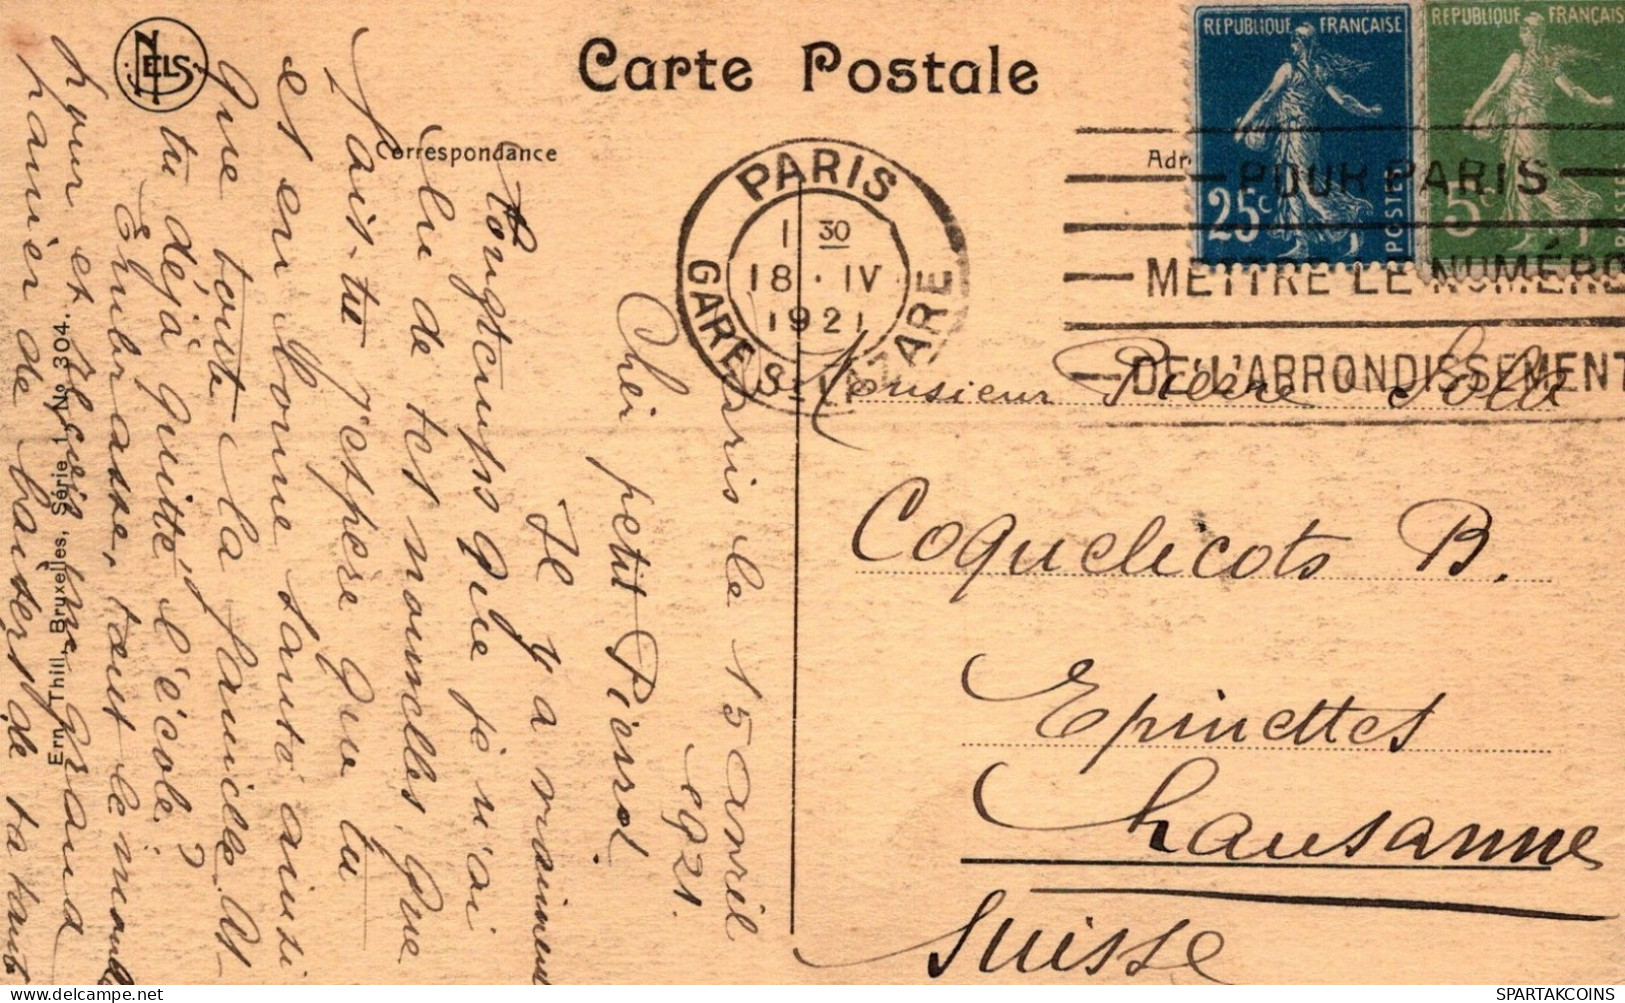 NELS
Carte Postale
Correspondance
RÉPUBLIQUE FRANÇAISE
25c
POSTES
RÉPUBLIQUE FRANÇAIS
5c
PARIS
1 30
18 · IV
1921
GARE St LAZARE
POUR PARIS
METTRE LE NUMÉRO
DE L'ARRONDISSEMENT
Adr
Monsieur Pierre
Coquelicots B.
Epinettes
Lausanne
Suisse
Paris le 15 avril
1921.
Cher petit Pierrot
Il y a vraiment
longtemps que je n'ai
lu de tes nouvelles, que
fais-tu j'espère que tu
es en bonne santé ainsi
que toute la famille. As-
tu déjà quitté l'école?
Embrasse, tout le monde
pour et reçois un grand
panier de baisers de ta tante
Ern. Thill, Bruxelles, Série 1 No 304.
SPARTAKCOINS